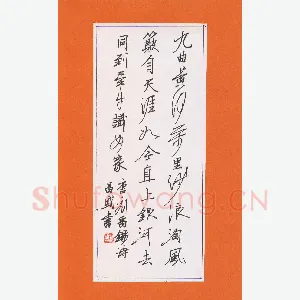 九曲黄河万里沙浪淘风
簸自天涯如今直上银河去
同到牵牛织女家 唐刘禹锡诗
昌盛书
Shufawang.CN